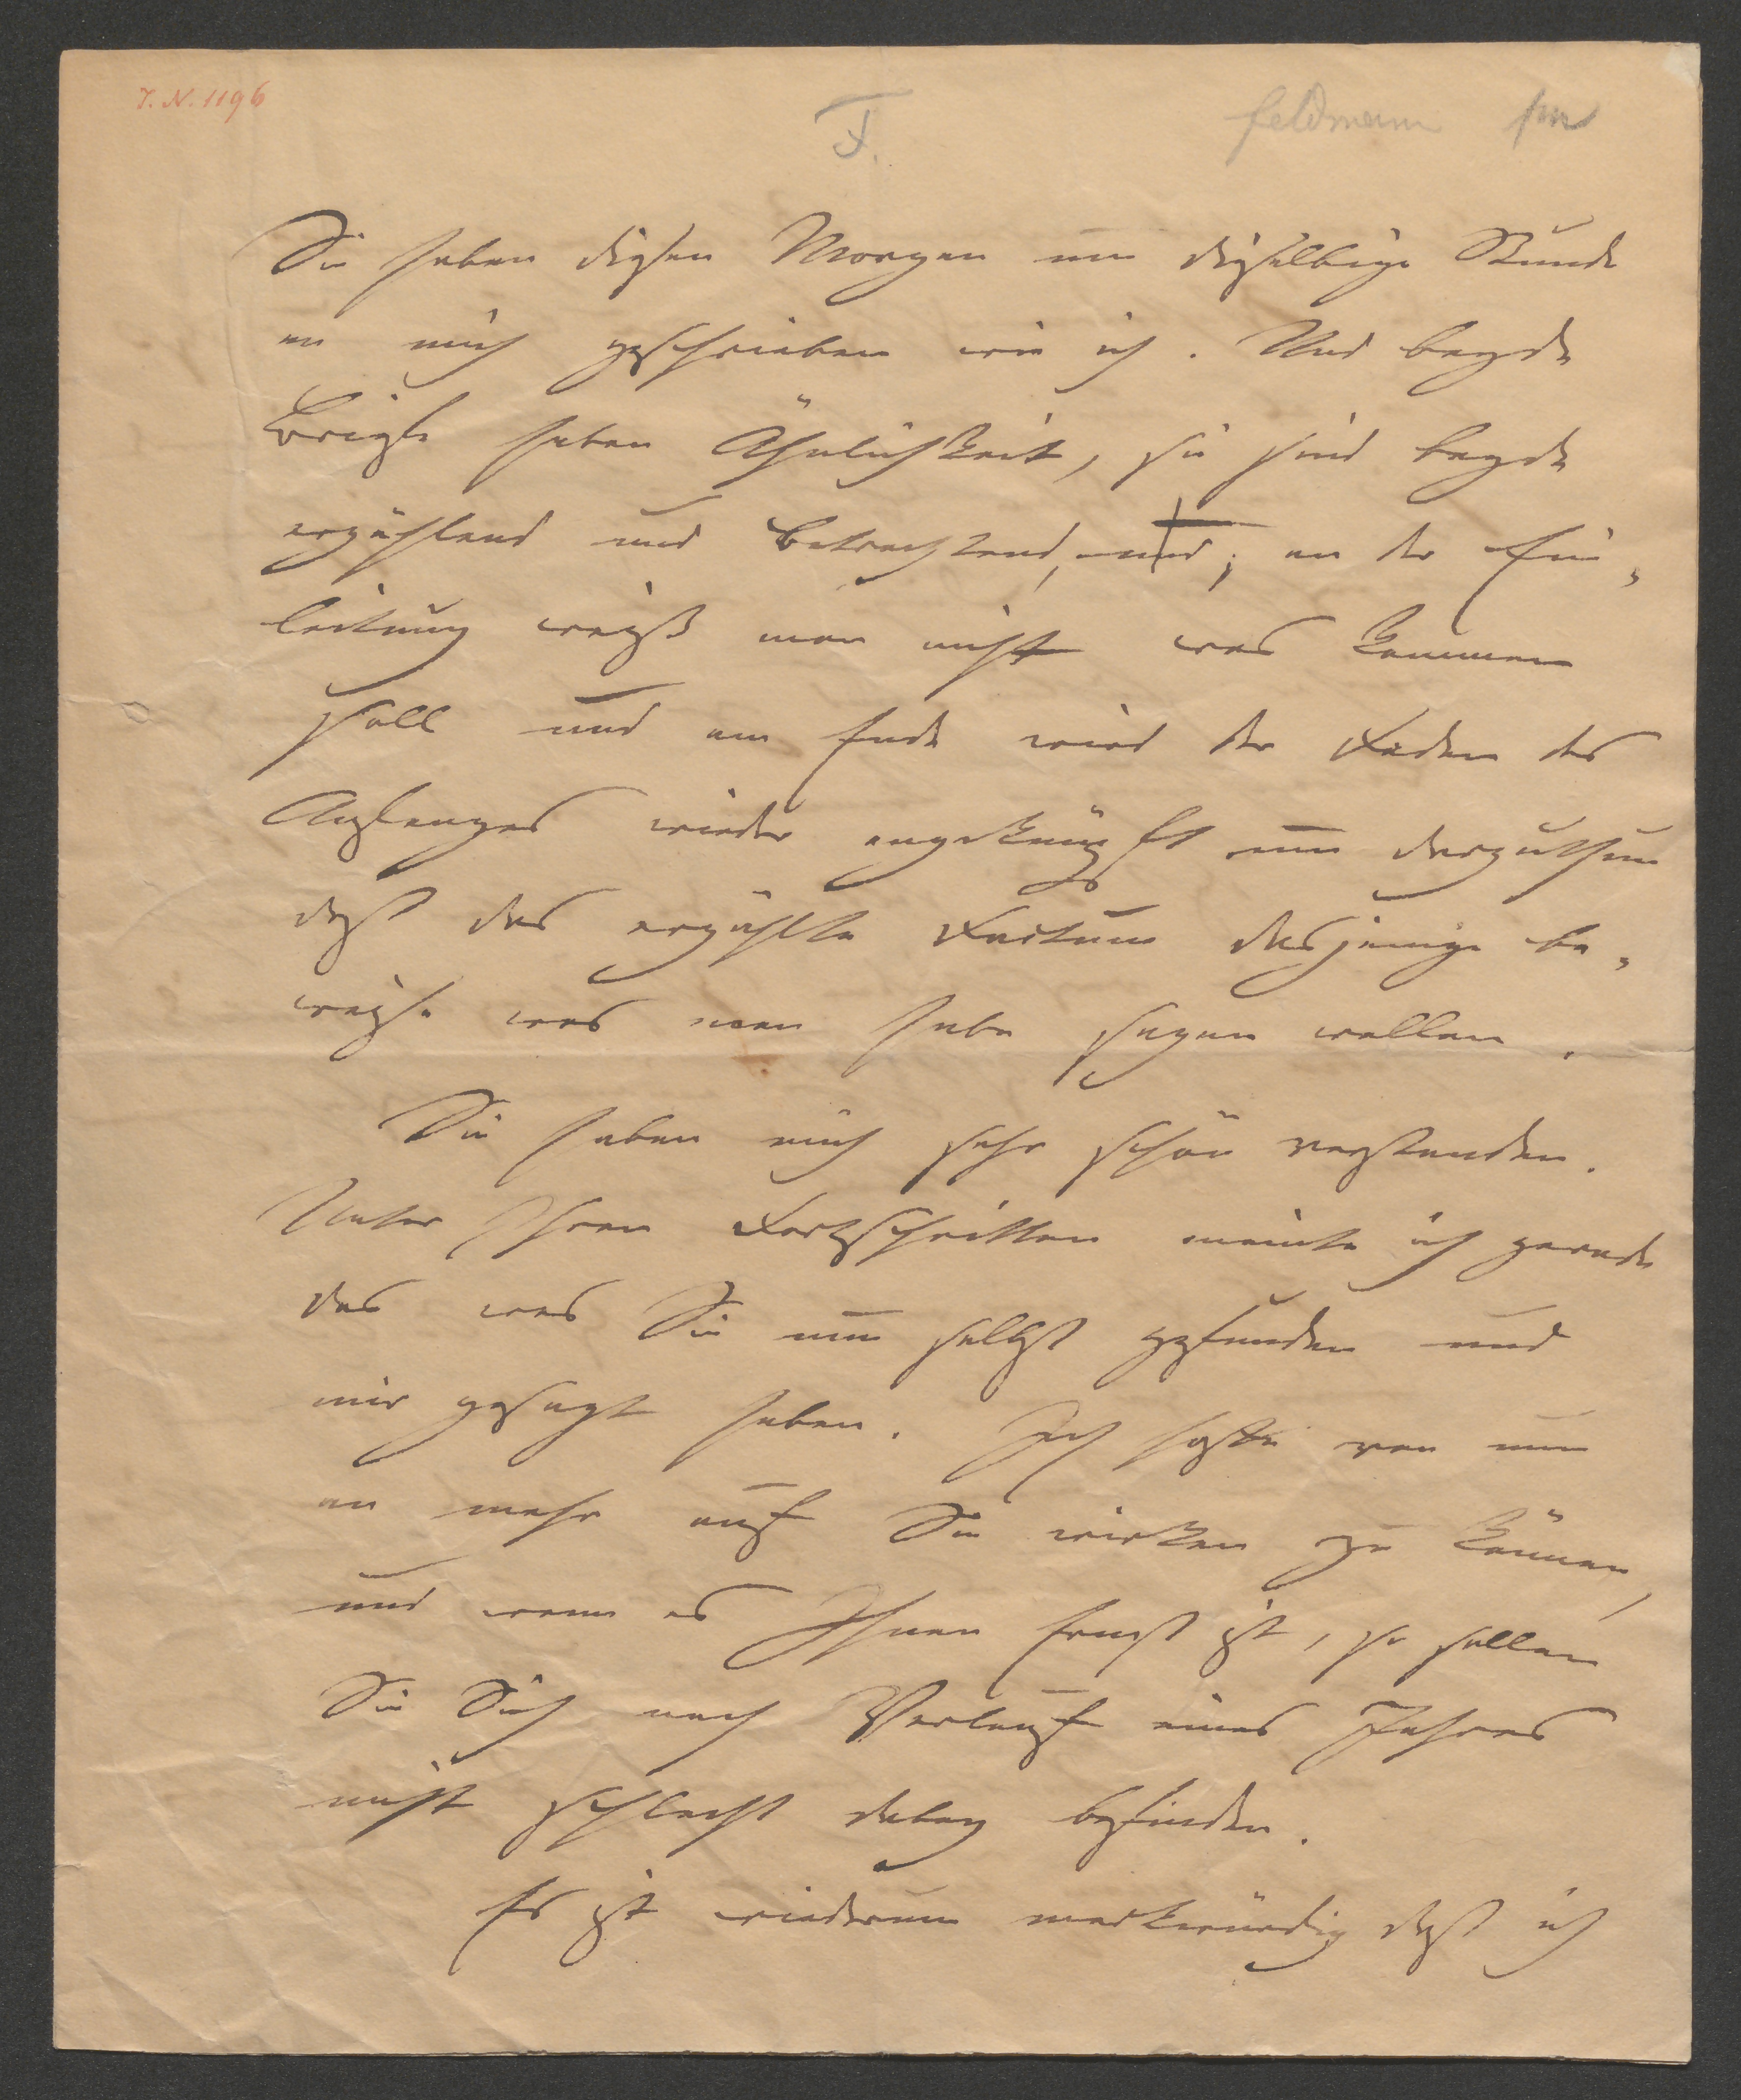 J. N. 1196
F.
Feldmann
Sie haben diesen Morgen um dieselbige Stunde
an mich geschrieben wie ich. Und beyde
Briefe haben Ähnlichkeit, sie sind beyde
erzählend und betrachtend, und; an der Ein„
leitung weiß man nicht was kommen
soll und am Ende wird der Faden des
Anfanges wieder angeknüpft um darzuthun
daß das erzählte Factum dasjenige be„
weise was man habe sagen wollen.
Sie haben mich sehr schön verstanden.
Unter Ihren Fortschritten meinte ich gerade
das was Sie nun selbst gefunden und
mir gesagt haben. Ich hoffe von nun
an mehr auf Sie wirken zu können,
und wenn es Ihnen Ernst ist, so sollen
Sie Sich nach Verlauf eines Jahres
nicht schlecht dabey befinden.
Es ist wiederum merkwürdig daß ich